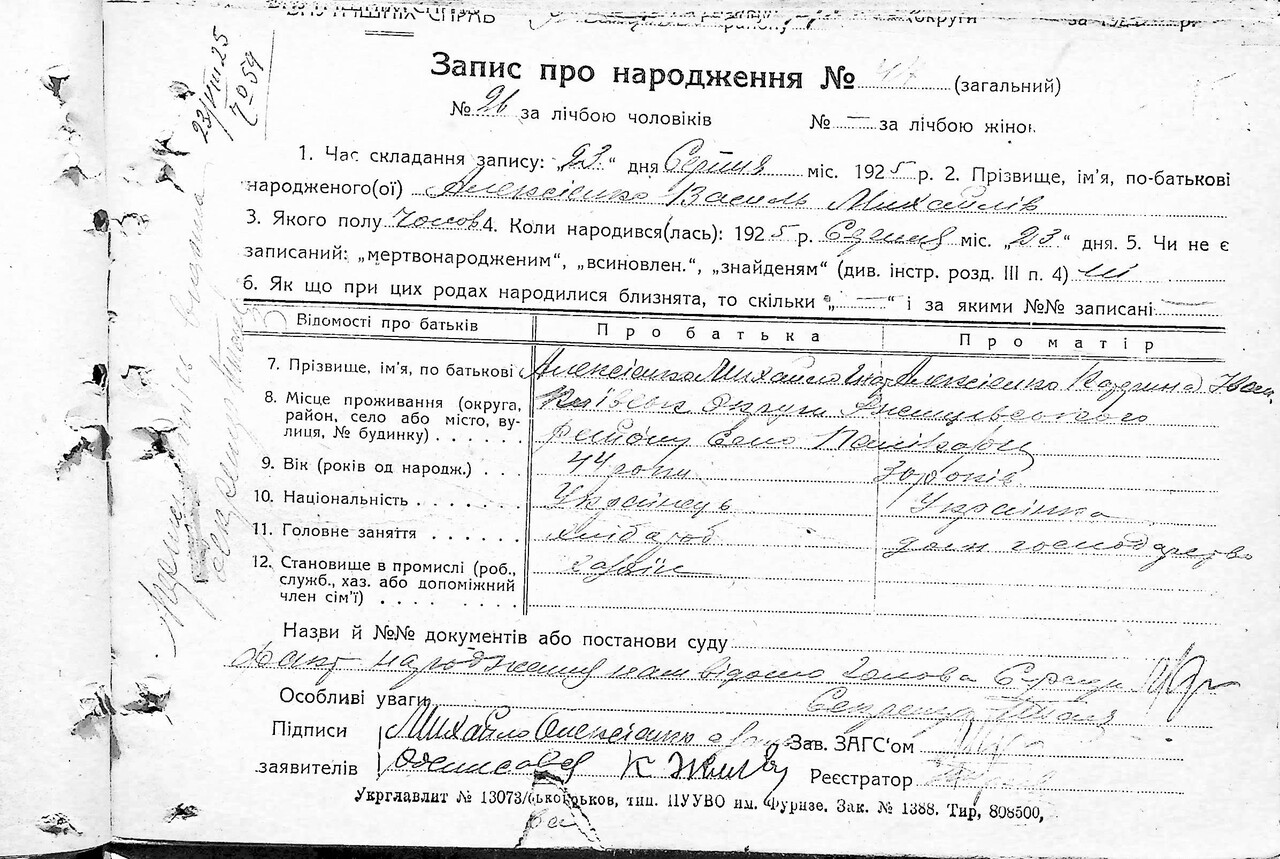 ВНУТРІШНІХ СПРАВ округи за 192 р.
району
23/VIII 25
№ 54
Запис про народження № 44 (загальний)
№ 26 за лічбою чоловіків № — за лічбою жінок
1. Час складання запису: „23“ дня Серпня міс. 1925 р. 2. Прізвище, ім’я, по-батькові
народженого(ої) Алексієнко Василь Михайлів
3. Якого полу Чолов 4. Коли народився(лась): 1925 р. Серпня міс. „23“ дня. 5. Чи не є
записаний: „мертвонародженим“, „всиновлен.“, „знайденям“ (див. інстр. розд. III п. 4) ні
6. Як що при цих родах народилися близнята, то скільки „—“ і за якими №№ записані —
Відомості про батьків Про батька Про матір
7. Прізвище, ім’я, по батькові Алексієнко Михайло Алексієнко Катерина Іван.
8. Місце проживання (округа, район, село або місто, вулиця, № будинку) Київськ округи
району Село
9. Вік (років од народж.) 44 роки 30 років
10. Національність Українець Українка
11. Головне заняття Хлібороб дом господарство
12. Становище в промислі (роб., служб., хаз. або допоміжний член сім’ї) Хазяїн
Назви й №№ документів або постанови суду
Факт народження нам відомо Голова С-ради
Особливі уваги Секретар
Підписи Михайло Олексієнко Зав. ЗАГС‘ом
заявителів К Реєстратор
Укрглавлит № 13073/ Харьков, тип. ПУУВО им. Фрунзе. Зак. № 1388. Тир, 808500,